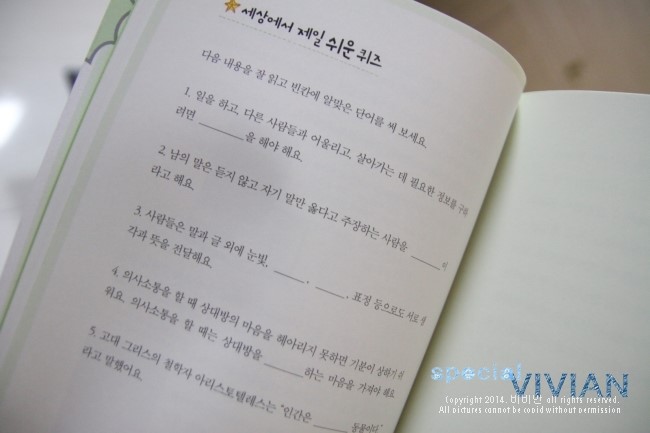 세상에서 제일 쉬운 퀴즈
다음 내용을 잘 읽고 빈칸에 알맞은 단어를 써 보세요.
1. 일을 하고, 다른 사람들과 어울리고, 살아가는 데 필요한 정보를 구하
려면 ________을 해야 해요.
2. 남의 말은 듣지 않고 자기 말만 옳다고 주장하는 사람을 ______이
라고 해요.
3. 사람들은 말과 글 외에 눈빛, ______, ______, 표정 등으로도 서로 생
각과 뜻을 전달해요.
4. 의사소통을 할 때 상대방의 마음을 헤아리지 못하면 기분이 상하기 쉬
워요. 의사소통을 할 때는 상대방을 ______하는 마음을 가져야 해요.
5. 고대 그리스의 철학자 아리스토텔레스는 "인간은 ______ 동물이다."
라고 말했어요.
special VIVIAN
Copyright 2014. 비비안 all rights reserved.
All pictures cannot be copid without permission